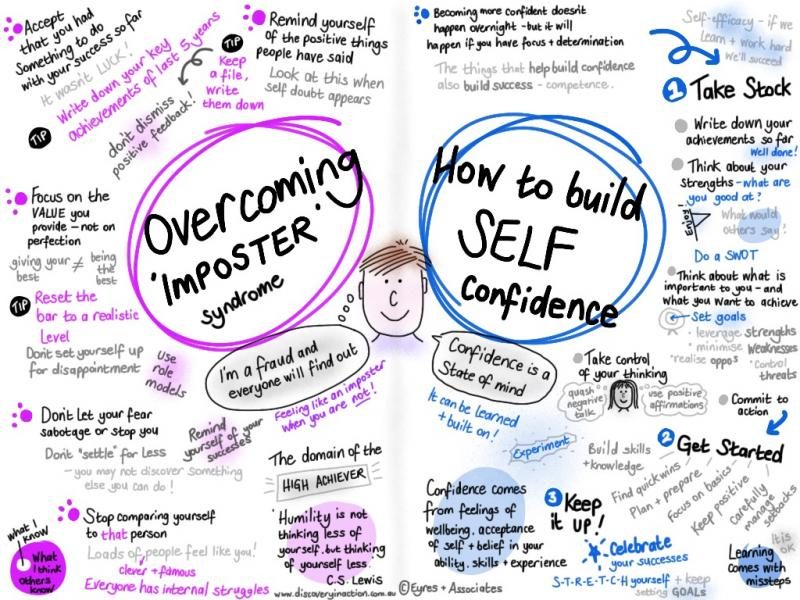 Accept
that you had
Something to do
with your success so far
It wasn't LUCK!
TIP
Write down your key
achievements of last 5 years
Remind yourself
of the positive things
people have said
TIP
Keep
a file,
write
them down
Look at this when
self doubt appears
don't dismiss
positive feedback!
Overcoming
'IMPOSTER'
syndrome
Focus on the
VALUE you
provide – not on
perfection
giving your best ≠ being the best
TIP
Reset the
bar to a realistic
Level
Don't set yourself up
for disappointment
Use
role
models
I'm a fraud and
everyone will find out
Feeling like an imposter
when you are not!
Don't Let your fear
sabotage or stop you
Don't "settle" for Less
– you may not discover something
else you can do!
Remind
yourself of your
successes
The domain of the
HIGH ACHIEVER
Stop comparing yourself
to that person
Loads of people feel like you!
clever + famous
Everyone has internal struggles
what I
know
What
I think
others
know
'Humility is not
thinking less of
yourself, but thinking
of yourself less.
C.S. Lewis
www.discoveryinaction.com.au
© Eyres + Associates
Becoming more confident doesn't
happen overnight – but it will
happen if you have focus + determination
The things that help build confidence
also build success – competence.
Self-efficacy – if we
Learn + work hard
We'll succeed
How to build
SELF
confidence
1 Take Stock
Write down your
achievements so far
Well done!
Think about your
strengths – what are
you good at?
What would
others say!
Do a SWOT
Think about what is
important to you – and
what you want to achieve
Set goals
leverage strengths
minimise weaknesses
'realise oppos
'control
threats
Take control
of your thinking
quash
negative
talk
use positive
affirmations
Commit to
action
Confidence is a
State of mind
It can be learned
+ built on!
Experiment
2 Get Started
Build skills
+ knowledge
Find quick wins
Plan + prepare
Focus on basics
Keep positive
Carefully
manage
setbacks
It is
OK
Learning
comes with
missteps
Confidence comes
from feelings of
wellbeing, acceptance
of self + belief in your
ability, skills + experience
3 Keep
it up!
Celebrate
your successes
S-T-R-E-T-C-H yourself + keep
setting GOALS